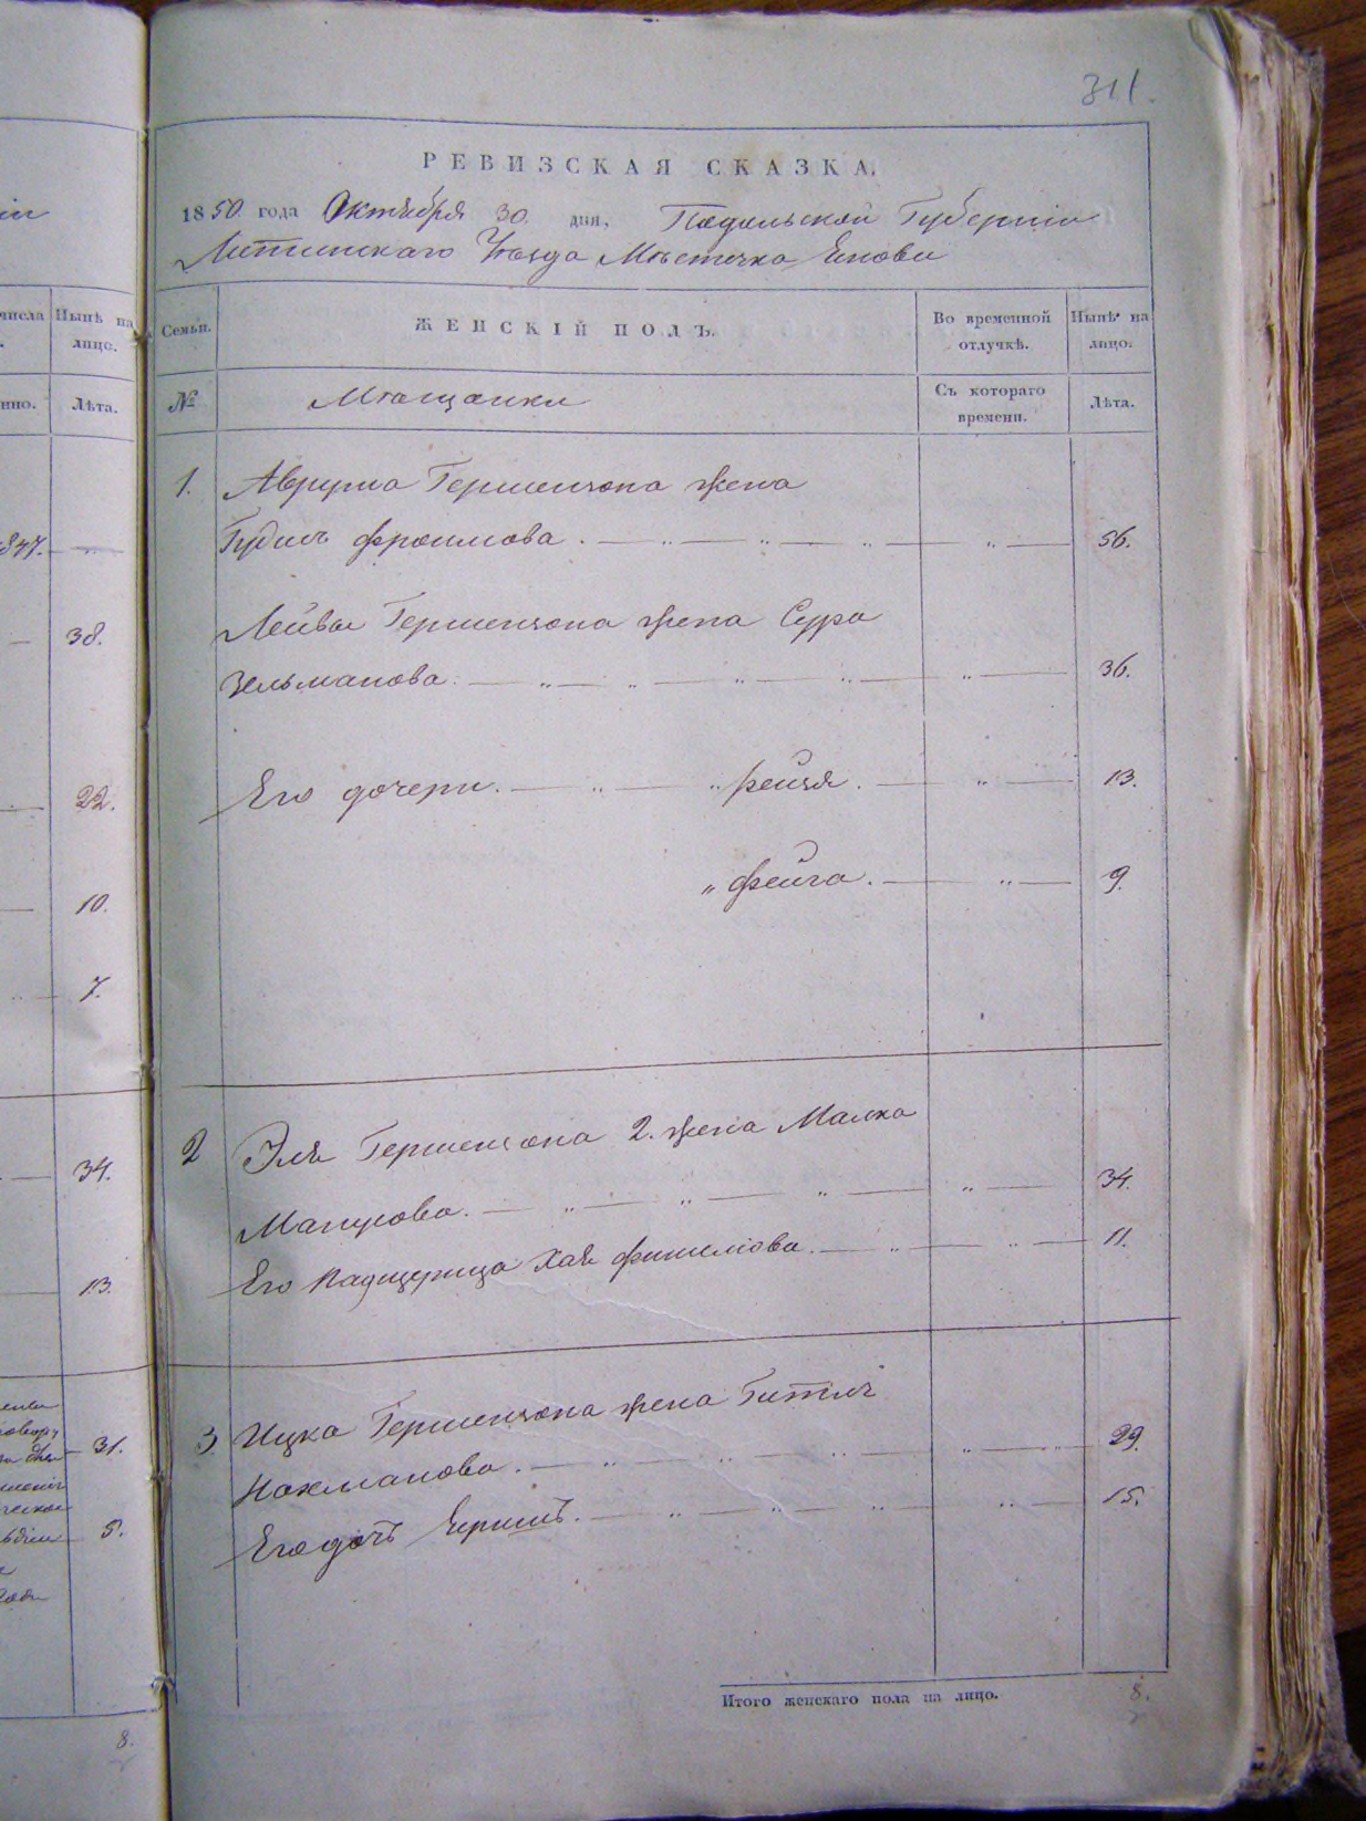 311.
РЕВИЗСКАЯ СКАЗКА.
1850 года Октября 30 дня, Подольской Губерніи
Литинскаго Уѣзда Мѣстечка
Семьи.
ЖЕНСКІЙ ПОЛЪ.
Во временной отлучкѣ.
Нынѣ на лицо.
№
Мѣщанки
Съ котораго времени.
Лѣта.
1. Аврума Гершензона жена
Фроимова. 56.
Лейбы Гершензона жена Сура
Зельманова. 36.
Его дочери. Рейзя. 13.
" Фейга. 9.
2 Эля Гершензона 2. жена Малка
34.
Его падщерица Хая 11.
3 Ицка Гершензона жена Гитль
Нахманова. 29.
Его дочь 15.
Итого женскаго пола на лицо. 8.
числа
Нынѣ на
лицо.
Лѣта.
38.
22.
10.
7.
34.
13.
31.
5.
8.